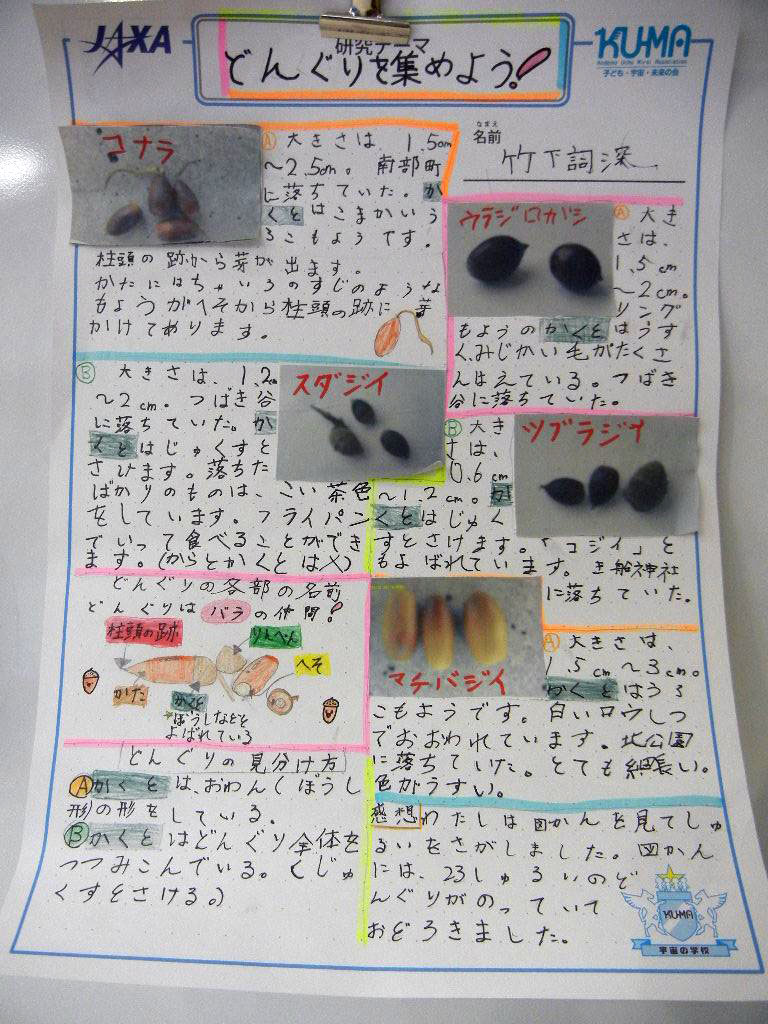 JAXA
研究テーマ
どんぐりを集めよう!
KU-MA
Kodomo Uchu Mirai Association
子ども・宇宙・未来の会
なまえ
名前
竹下詞深
コナラ
Ⓐ大きさは、1.5cm
〜2.5cm。南部町
に落ちていた。か
くとはこまかいう
ろこもようです。
柱頭の跡から芽が出ます。
かたにはちゃいろのすじのような
もようがへそから柱頭の跡に
かけてあります。
ウラジロガシ
Ⓐ大き
さは、
1.5cm
〜2cm。
リング
もようのかくとはうす
く、みじかい毛がたくさ
んはえている。つばき
谷に落ちていた。
Ⓑ大きさは、1.2cm
〜2cm。つばき谷
に落ちていた。か
くとはじゅくすと
さけます。落ちた
ばかりのものは、こい茶色
をしています。フライパン
でいって食べることができ
ます。(からとかくとは×)
スダジイ
Ⓑ大き
さは、
0.6cm
〜1.2cm。か
くとはじゅく
すとさけます。「コジイ」と
もよばれています。
神社
に落ちていた。
ツブラジイ
どんぐりの各部の名前
どんぐりはバラの仲間!
柱頭の跡
りんぺん
へそ
かた
かくと
ぼうしなどと
よばれている
マテバジイ
Ⓐ大きさは、
1.5cm〜3cm。
かくとはうろ
こもようです。白いロウしつ
でおおわれています。北公園
に落ちていた。とても細長い。
色がうすい。
どんぐりの見分け方
Ⓐかくとは、おわん(ぼうし
形)の形をしている。
Ⓑかくとはどんぐり全体を
つつみこんでいる。(じゅ
くすとさける。)
感想わたしは図かんを見てしゅ
るいをさがしました。図かん
には、23しゅるいのど
んぐりがのっていて
おどろきました。
KUMA
宇宙の学校